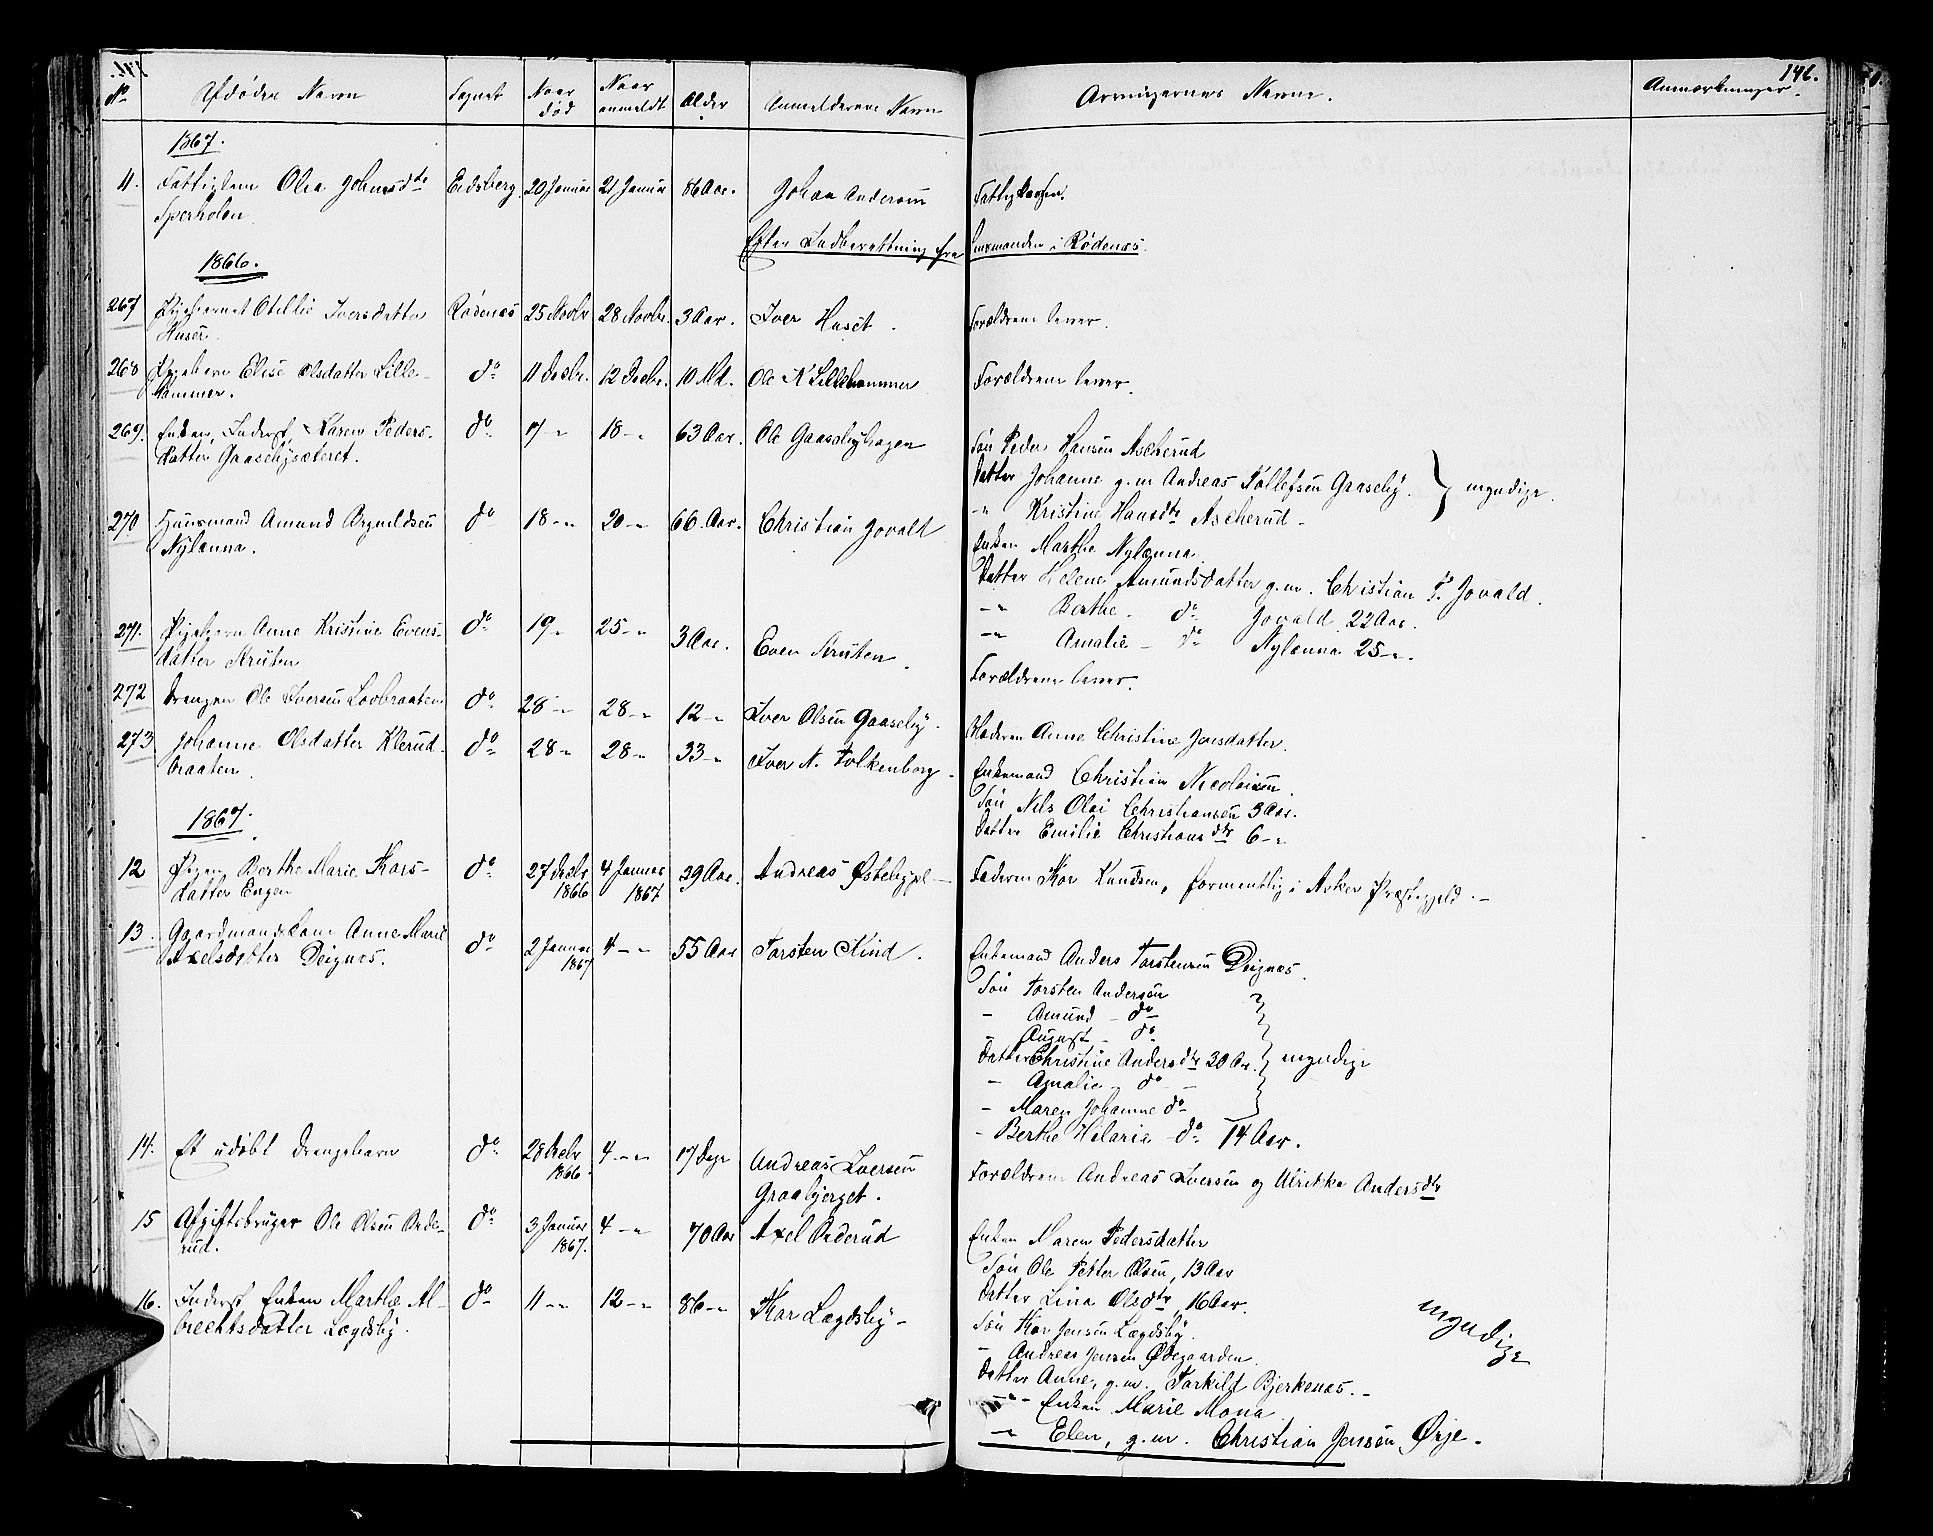 146.
No Afdødes Navn Sognet Naar død Naar anmeldt Alder Anmelderens Navn Arvingernes Navne. Anmærkninger.
1867.
11. Fattiglem Olea Johnsdtr Eidsberg 20 Januar 21 Januar 86 Aar. Johan Andersen Fattigkassen.
Sperholen
Efter Indberettning fra Lensmanden i Rødenæs.
1866.
267 Pigebarnet Otellie Iversdatter Rødenæs 25 Novbr 28 Novbr. 3 Aar. Iver Huset. Forældrene lever.
Huser.
268 Pigebarn Elise Olsdatter Lille- do 11 Decbr. 12 Decbr. 10 Md. Ole N Lillehammer Forældrene lever.
hammer.
269. Enken, Inderst, Karen Peders- do 17 " 18 - " 63 Aar. Ole Gaasebyhagen Søn Peder Hansen Ascherud
datter Gaasebysæteret. Datter Johanne g. m Andreas Tollefsen Gaaseby. } myndige.
- " Kristine Hansdtr Ascherud -
270 Huusmand Amund Brynildsen do 18 - " 20 - " 66. Aar. Christian Jovald Enken Marthe Nylænna
Nylænna. Datter Helene Amundsdatter g. m. Christian T. Jovald.
- " Berthe - do Jovald 22 Aar.
- " Amalie - do Nylænna 25 - ".
271. Pigebarn Anne Kristine Evens- do 19 " 25 - " 3 Aar. Even Struten. Forældrene lever.
datter Struten
272 Drengen Ole Iversen Lovbraaten do 28 - " 28 - " 12 - " Iver Olsen Gaaseby. Moderen Anne Christine Jonsdatter.
273 Johanne Olsdatter Klerud- do 28 - " 28 - " 33 - " Iver N. Folkenborg - Enkemand Christian Nicolaisen
braaten. Søn Nils Olai Christiansen 3 Aar.
Datter Emilie Christiansdtr 6 - "
1867.
12 Pigen Berthe Marie Thors- do 27 Decbr 1866 4 Januar 1867 29 Aar. Andreas Østebypl - Faderen Thor Knudsen, formentlig i Asker Præstegjeld. -
datter Engen
13. Gaardmandskone Anne Marie do 2 Januar 1867 4 - " 55 Aar Torsten Kind. Enkemand Anders Torstensen Deignæs.
Axelsdatter Deignæs. Søn Torsten Andersen
- Amund - do
- August - do
Datter Christine Andersdtr 20 Aar. } myndige
- Amalie - do -
- Maren Johanne do
- Berthe Hilaria - do 14 Aar.
14. Et udøbt Drengebarn do 28 Decbr 1866. 4 - " 17 Dage Andreas Iversen Forældrene Andreas Iversen og Ulrikke Andersdtr
Graabjerget.
15 Afgiftsbruger Ole Olsen Onde- do 3 Januar 1867. 4 - " 70 Aar Axel Onderud Enken Maren Pedersdatter
rud. Søn Ole Petter Olsen, 13 Aar
Datter Lina Olsdtr, 16 Aar.
16. Inderst Enken Marthe Al- do 11 - " 12 - " 86 - " Thor Lægdsby - Søn Thor Jensen Lægdsby.
brechtsdatter Lægdsby. - Andreas Jensen Ødegaarden
Datter Anne, g. m. Torkild Bjerkenæs. - myndige
- " - Enken Marie Mona
- " Elen, g. m. Christian Jensen Ørje.